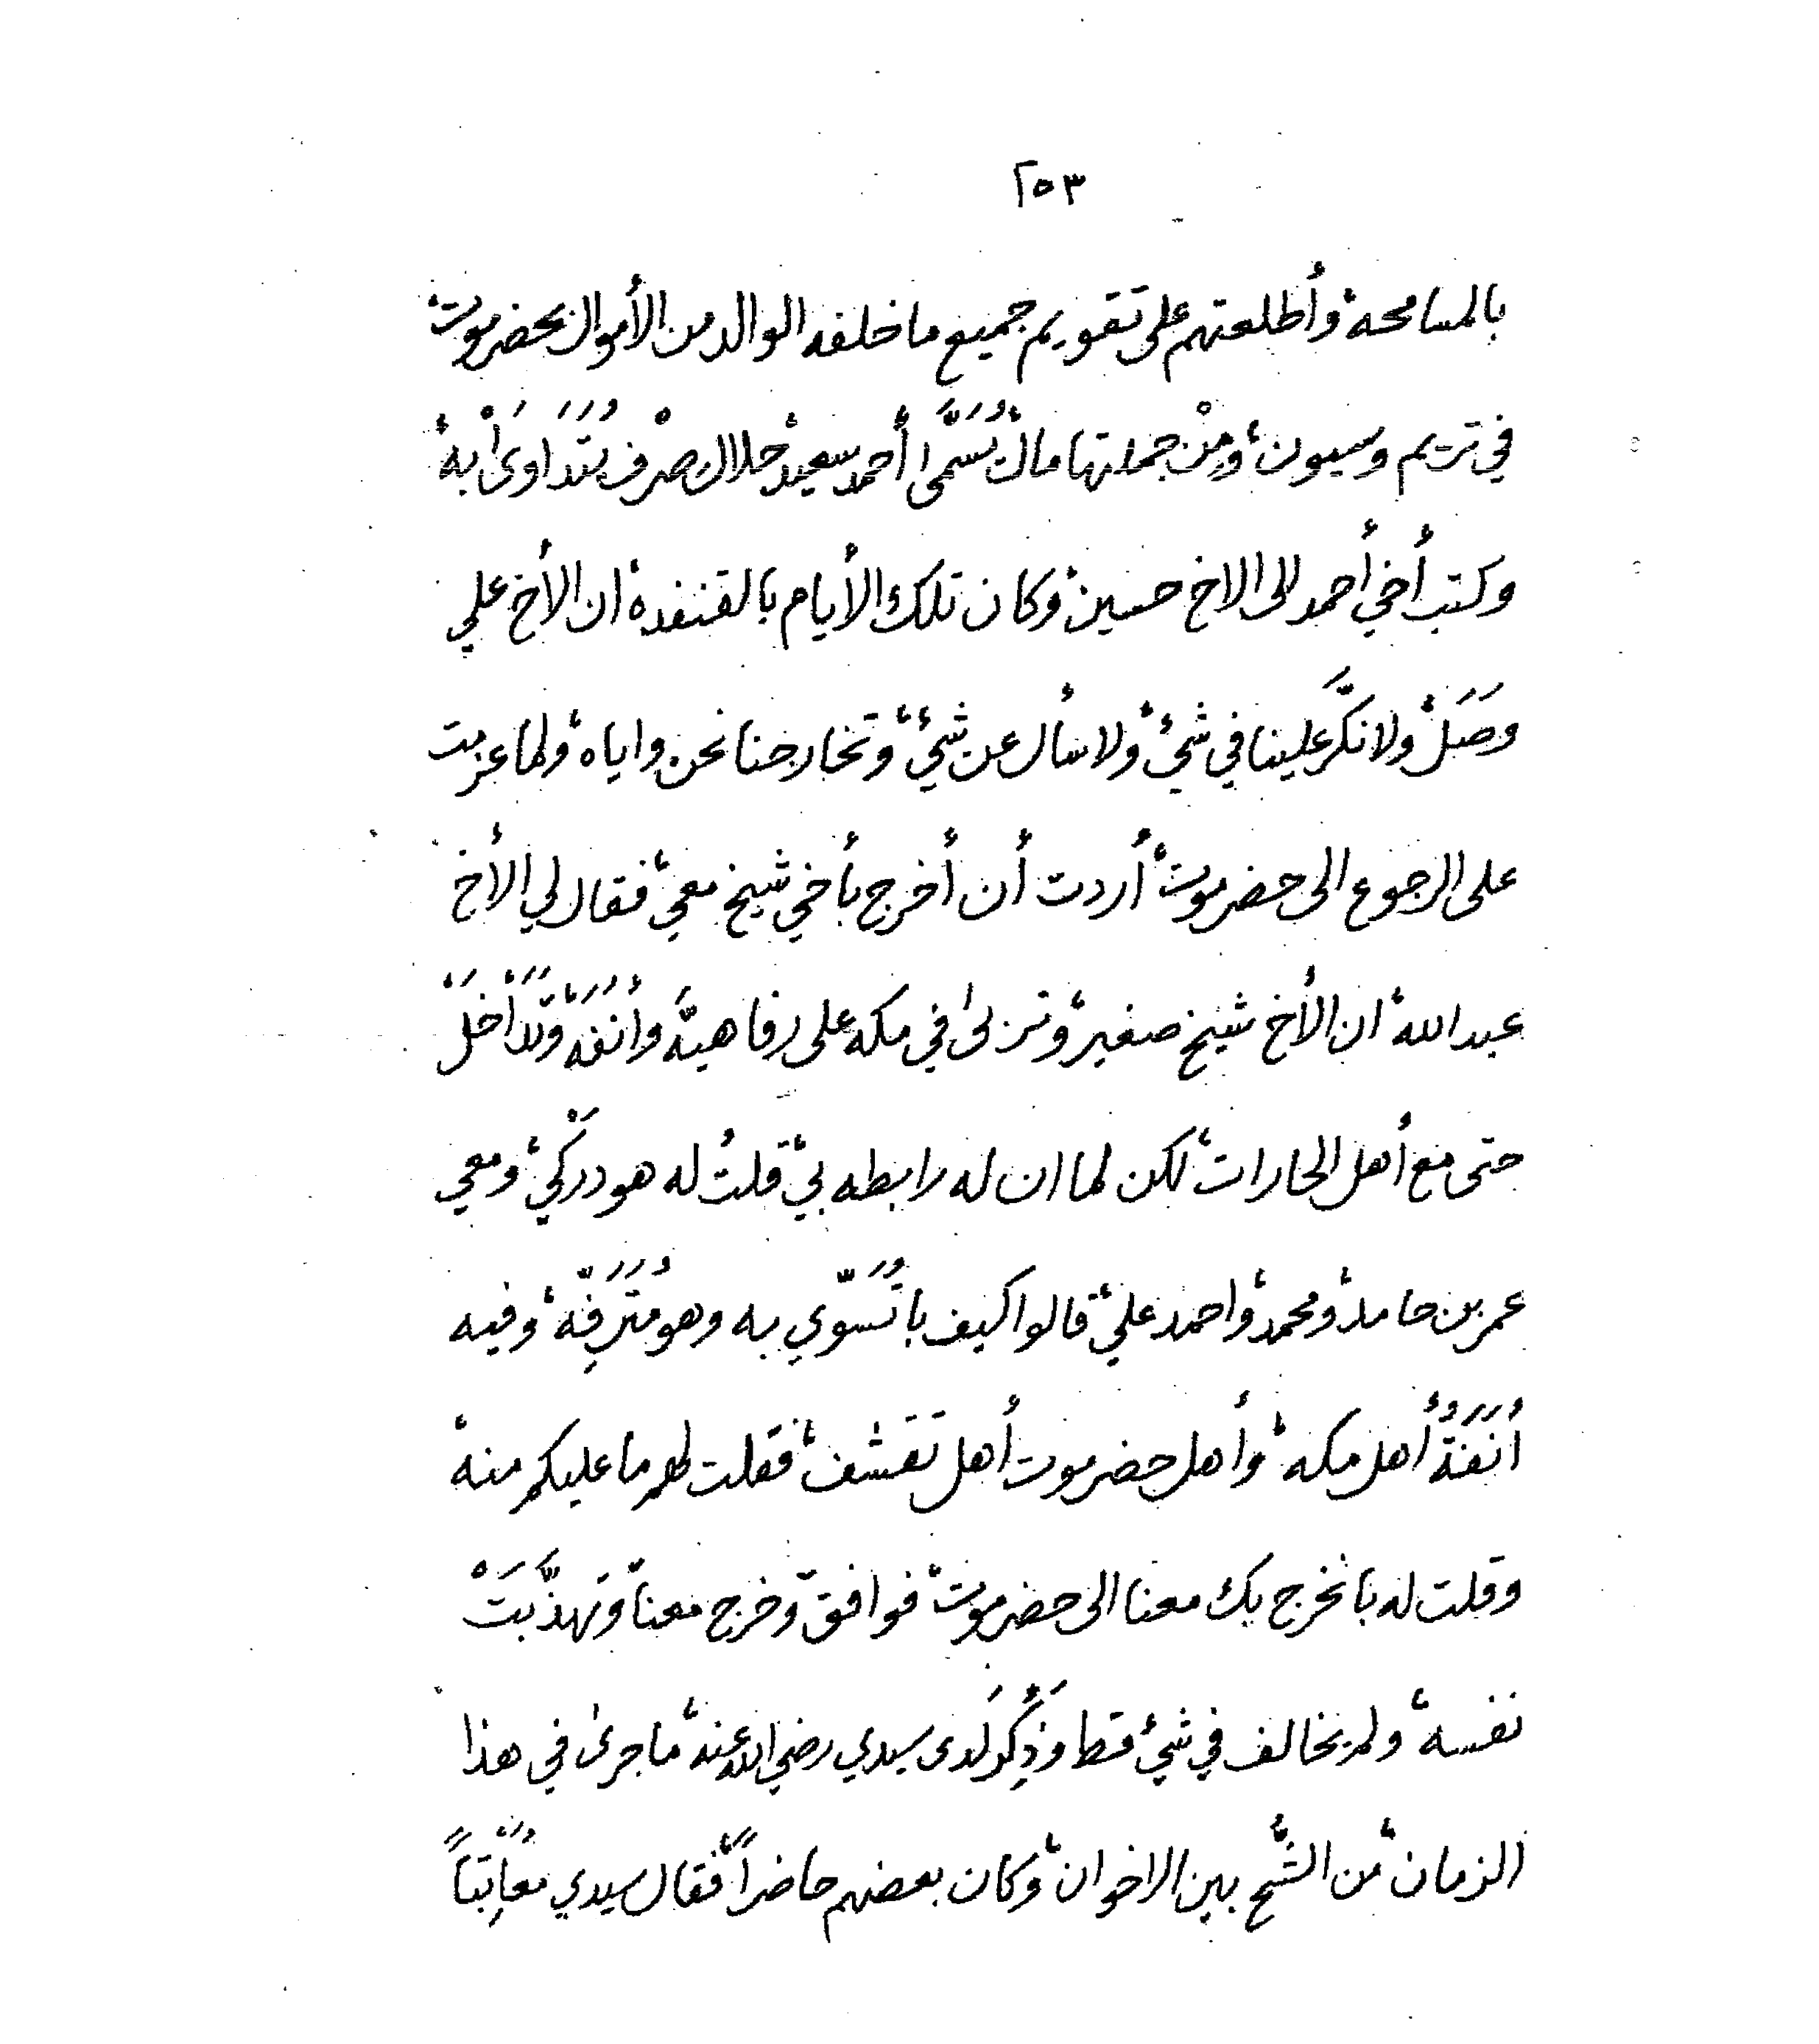 ٢٥٣
بالمسامحة، وأطلعتهم على تقويم جميع ما خلفه الوالد من الأموال بحضرموت،
في تريم وسيون، ومِنْ جملتها مال يُسَمَّى أحمد سعيد، حلال صِرْف يُتَدَاوَىٰ به،
وكتب أخي أحمد الى الاخ حسين، وكان تلك الأيام بالقنفدة، ان الأخ علي
وصَلَ، ولا نكَّر علينا في شيْء، ولا سأل عن شيْء، وتخارجنا نحن واياه، ولما عزمت
على الرجوع الى حضرموت، أردت أن أخرج بأخي شيخ معي، فقال لي الأخ
عبدالله، ان الأخ شيخ صغير، وتربىٰ في مكه على رفاهيَّه وأُنَفَه، ولَا أَخَلْ
حتى مع أهل الحارات، لكن لما ان له رابطه بي، قلتُ له هو دَرَكي، ومعي
عمر بن حامد، ومحمد، واحمد علي، قالوا كيف باتُسَوّي به وهو مُتَرَفِّه، وفيه
أُنَفَةُ أهل مكه، وأهل حضرموت أهل تَقَشف، فقلت لهم ما عليكم منه،
وقلت له بانخرج بك معنا الى حضرموت، فوافق، وخرج معنا، وتهذَّبَتْ
نفسه، ولم يخالف في شيْء قط، وذُكِرَ لدى سيدي رضي الله عنه، ما جرىٰ في هذا
الزمان، من الشُّح بين الاخوان، وكان بعضهم حاضراً، فقال سيدي مُعَاتِباً